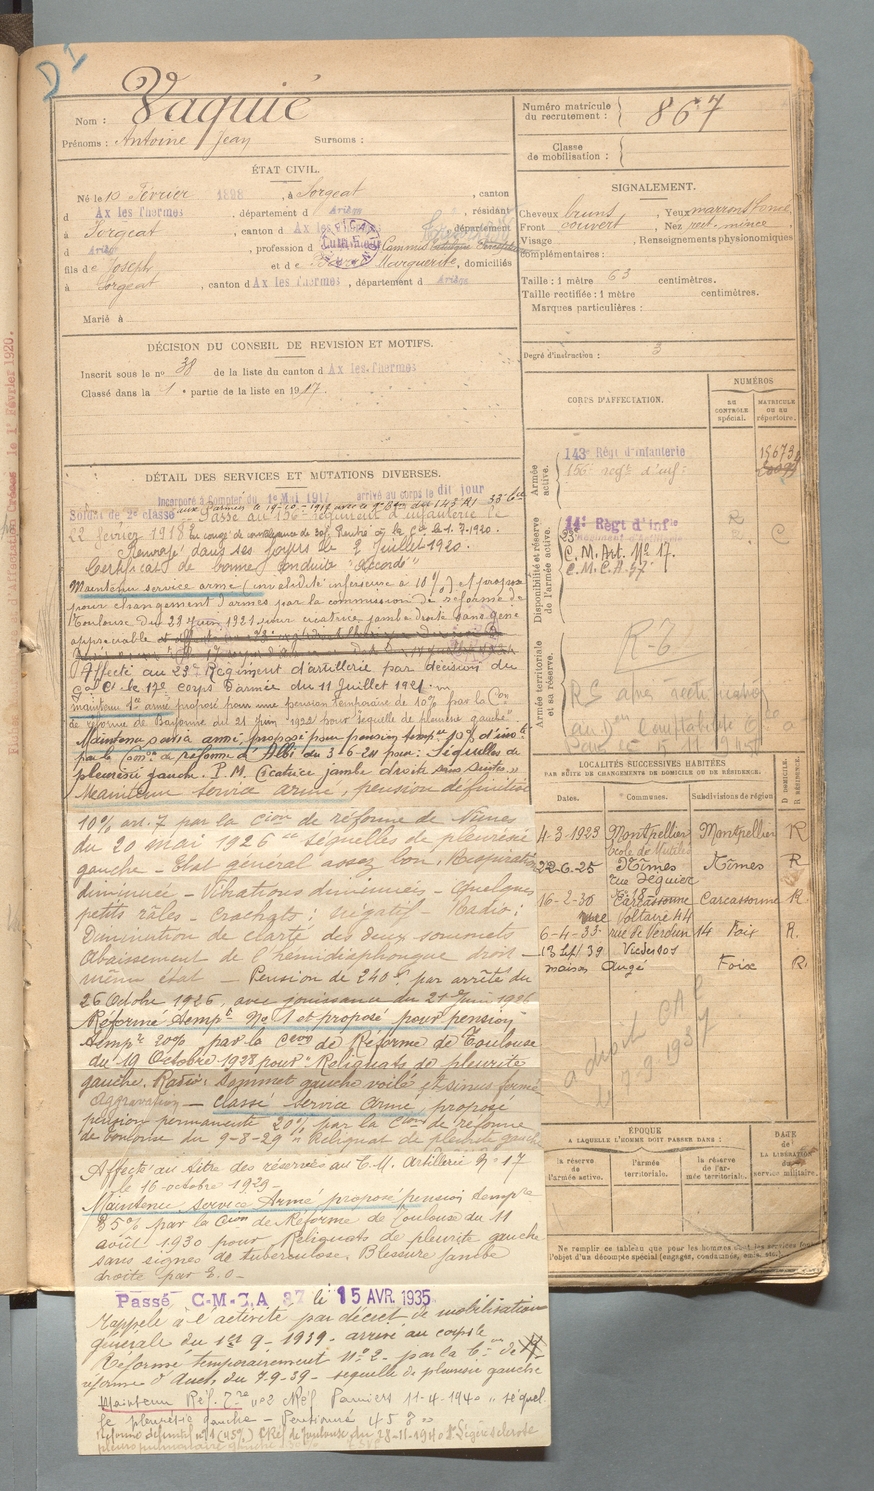 D I
Nom : Vaquié
Prénoms : Antoine Jean Surnoms :
Numéro matricule du recrutement : 867
Classe de mobilisation :
ÉTAT CIVIL.
Né le 10 Février 1898, à Sorgeat, canton
d Ax les Thermes, département d Ariège, résidant
à Sorgeat, canton d Ax les, département
d Ariège, profession d Commis
fils de Joseph et de Marguerite, domiciliés
à Sorgeat, canton d Ax les Thermes, département d Ariège
Marié à
SIGNALEMENT.
Cheveux bruns Yeux marrons foncé
Front couvert, Nez rect. mince
Visage, Renseignements physionomiques
complémentaires :
Taille : 1 mètre 63 centimètres.
Taille rectifiée : 1 mètre centimètres.
Marques particulières :
Degré d'instruction : 3
DÉCISION DU CONSEIL DE REVISION ET MOTIFS.
Inscrit sous le no 38 de la liste du canton d Ax les Thermes
Classé dans la 1e partie de la liste en 1917.
CORPS D'AFFECTATION.
NUMÉROS
DU CONTRÔLE spécial.
MATRICULE OU AU répertoire.
Armée active.
143e Régt d'infanterie
156e regt d'inf:
Disponibilité et réserve de l'armée active.
14e Régt d'Infie
C. M. Art. No 17.
C. M. C. A. 37
Armée territoriale et sa réserve.
DÉTAIL DES SERVICES ET MUTATIONS DIVERSES.
Incorporé à compter du 1er Mai 1917 arrivé au corps le dit jour
Soldat de 2e classe
Passé au 156e régiment d'infanterie le
22 février 1918
Renvoyé dans ses foyers le 2 Juillet 1920.
Certificat de bonne conduite "Accordé"
Maintenu service armé (invalidité inférieure à 10%) et proposé
pour changement d'armes par la commission de réforme de
Toulouse du 28 Juin 1921 pour cicatrice jambe droite sans gêne
appréciable
Affecté au 23e Régiment d'artillerie par décision du
Gal Ct le 17e Corps d'armée du 11 Juillet 1921.
maintenu s. armé proposé pour une pension temporaire de 10% par la Con
de réforme de Bayonne du 21 Juin 1922 pour "séquelle de pleurésie gauche".
Maintenu service armé, proposé pour pension tempre 10% d'invté
par la Comon de réforme d'Albi du 3-6-24 pour : Séquelles de
pleurésie gauche. P.M. Cicatrice jambe droite sans suites."
Maintenu service armé, pension définitive
10% art. 7 par la cion de réforme de Nîmes
du 20 mai 1926 séquelles de pleurésie
gauche - Etat général assez bon, Respiration
diminuée - Vibrations diminuées - Quelques
petits râles - Crachats : négatif - Radio :
Diminution de clarté des deux sommets
Abaissement de l'hémidiaphragme droit -
même état - Pension de 240f. par arrêté du
26 Octobre 1926, avec jouissance du 21 Juin 1926
Réformé tempt No 1 et proposé pour pension
tempre 20% par la Cion de Réforme de Toulouse
du 19 Octobre 1928 pour "Reliquats de pleurite
gauche. Radio : Sommet gauche voilé et sinus fermé
Aggravation - classé service armé, proposé
pension permanente 20% par la Cion de réforme
de Toulouse du 9-8-29 "Reliquat de pleurite gauche
Affecté au titre des réserves au C.M. Artillerie No 17
le 16 octobre 1929 -
Maintenu Service Armé proposé pension tempre
85% par la Cion de Réforme de Toulouse du 11
août 1930 pour Reliquats de pleurite gauche
sans signes de tuberculose. Blessure jambe
droite par E.O -
Passé C.M.C.A 37 le 15 AVR. 1935
Rappelé à l'activité par décret de mobilisation
générale du 1er 9-1939. arrivé au corps le
Réformé temporairement No 2 - par la Con de
réforme d'Auch du 7-9-39 - séquelle de pleurésie gauche
Maintenu Réf. Tre no 2 CRéf Pamiers 11-4-1940 "séquel-
le pleurésie gauche - Pensionné 45%"
Réformé définitif no 1 (45%) CRéf de Toulouse du 28-11-1940
R-T
LOCALITÉS SUCCESSIVES HABITÉES
PAR SUITE DE CHANGEMENTS DE DOMICILE OU DE RÉSIDENCE.
Dates. Communes. Subdivisions de région. D DOMICILE. R RÉSIDENCE.
4-3-1923 Montpellier Montpellier R
École de Mutilés
22-6-25 Nîmes Nîmes R
rue Séguier
16-2-30 Carcassonne Carcassonne R.
rue Voltaire 44
6-4-33 rue de Verdun 14 Foix R.
13 Sept 39 Vicdessos
maison Augé Foix R
a droit CAC
le 7-9-1937
ÉPOQUE
A LAQUELLE L'HOMME DOIT PASSER DANS :
la réserve de l'armée active.
l'armée territoriale.
la réserve de l'armée territoriale.
DATE de LA LIBÉRATION du service militaire.
Ne remplir ce tableau que pour les hommes dont les services font
l'objet d'un décompte spécial (engagés, condamnés, omis, etc.).